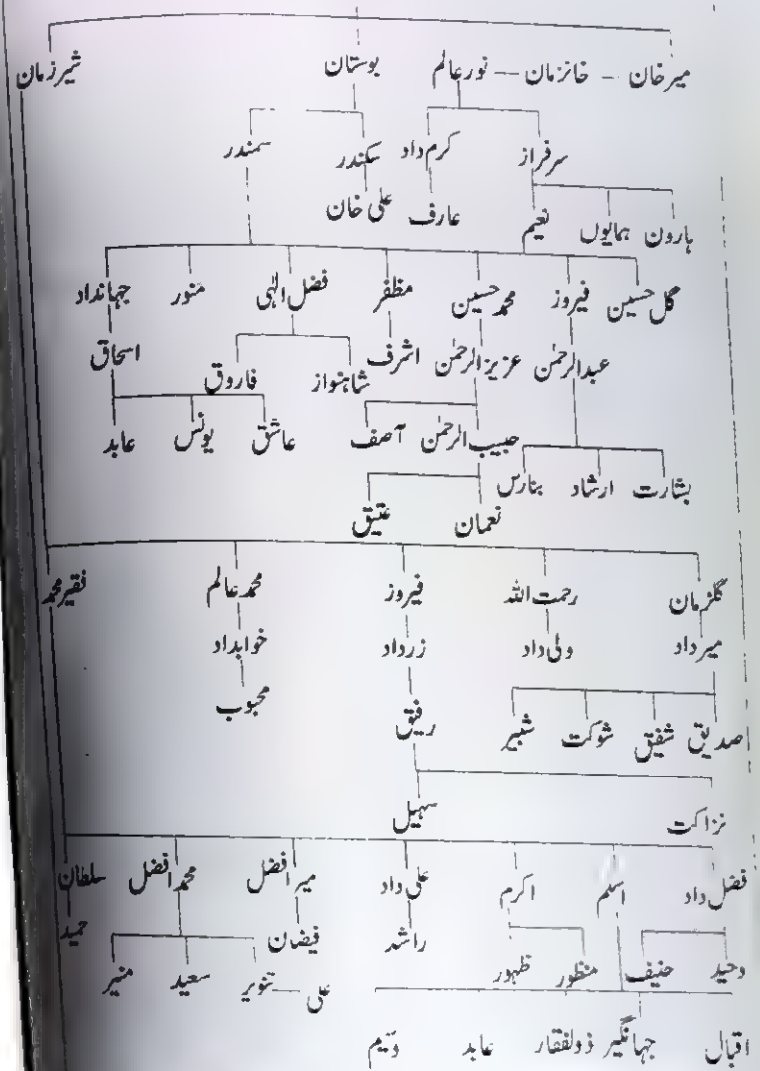 میرخان - خانزمان - نورعالم بوستان شیرزمان
سرفراز کرم داد سکندر سمندر
ہارون ہمایوں نعیم عارف علی خان
گل حسین فیروز محمد حسین مظفر فضل الٰہی منور جہانداد
عبدالرحمٰن عزیزالرحمٰن اشرف شاہنواز فاروق اسحاق
حبیب الرحمٰن آصف عاشق یونس عابد
بشارت ارشاد بنارس نعمان عتیق
گلزمان رحمت اللہ فیروز محمد عالم فقیر محمد
میرداد ولی داد زرداد خوابداد
صدیق شفیق شوکت شبیر رفیق محبوب
نزاکت سہیل
فضل داد اسلم اکرم علی داد میرافضل محمد افضل سلطان
وحید حنیف منظور ظہور راشد فیضان حمید
علی تنویر سعید منیر
اقبال جہانگیر ذولفقار عابد وسیم